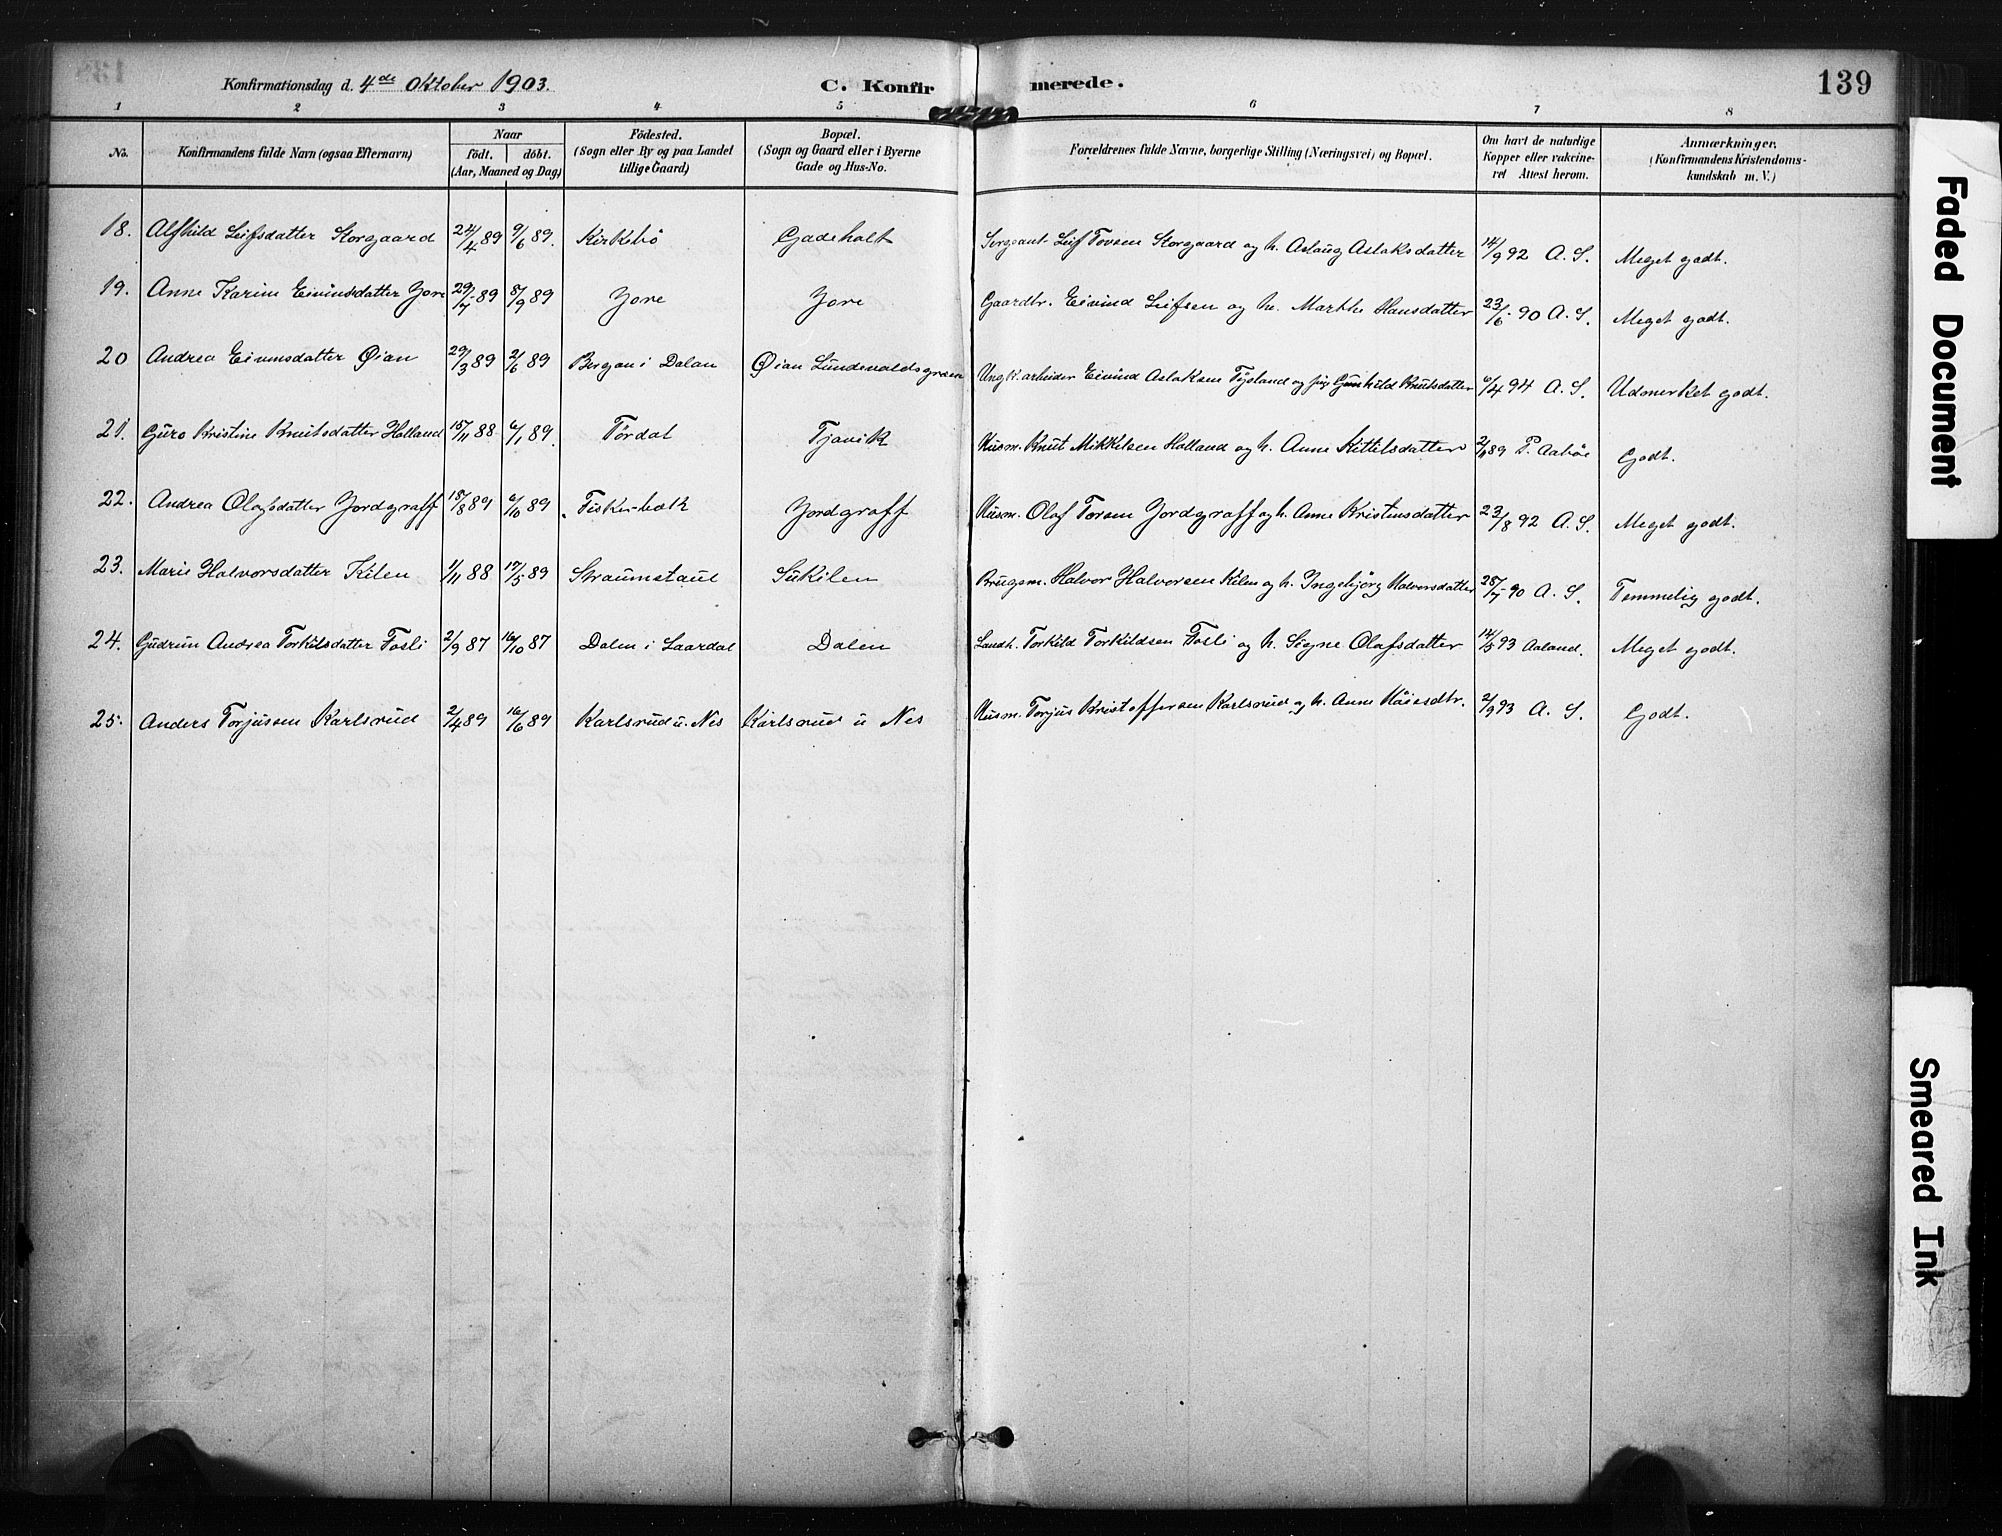 Konfirmationsdag d. 4de Oktober 1903. C. Konfirmerede. 139
1 2 3 4 5 6 7 8
No. Konfirmandens fulde Navn (ogsaa Efternavn) Naar födt. döbt. (Aar, Maaned og Dag) Födested. (Sogn eller By og paa Landet tillige Gaard) Bopæl. (Sogn og Gaard eller i Byerne Gade og Hus-No. Forældrenes fulde Navne, borgerlige Stilling (Næringsvei) og Bopæl. Om havt de naturlige Kopper eller vakcineret Attest herom. Anmærkninger. (Konfirmandens Kristendomskundskab m. V.)
18. Alfhild Leifsdatter Storgaard 24/4 89 9/6 89. Kirkebö Gadeholt Sergeant Leif Tovsen Storgaard og h. Aslaug Aslaksdatter 14/9 92 A. S. Meget godt.
19. Anne Karine Eivindsdatter Jore 29/7 89 8/9 89 Jore Jore Gaardbr. Eivind Leifsen og h. Marthe Hansdatter 23/6 90 A. S. Meget godt.
20 Andrea Eivindsdatter Øian 29/3 89 2/6 89 Bergan i Dalan Øian Lundevaldsgræn Ungk. arbeider Eivind Aslaksen Tysland og pige Gunhild Knutsdatter 6/4 94 A. S. Udmerket godt.
21. Guro Kristine Knutsdatter Holland 15/11 88 6/1 89. Tördal Tjavik Husm. Knut Mikkelsen Holland og h. Anne Kittilsdatter 2/11 89 P. Aabøe Godt.
22. Andrea Olafsdatter Jordgraff 18/8 89 6/10 89 Fiskerbæk Jordgraff Husm. Olaf Torsen Jordgraff og h. Anne Kristensdatter 23/8 92 A. S. Meget godt.
23. Marie Halvorsdatter Kilen 1/11 88 17/5 89 Straumstaul Sukilen Brugsm. Halvor Halvorsen Kilen og h. Ingebjörg Halvorsdatter 28/7 90 A. S. Temmelig godt.
24. Gudrun Andrea Torkilsdatter Fosli 2/9 87 16/10 87 Dalen i Laardal Dalen Landh. Torkild Torkildsen Fosli og h. Signe Olafsdatter 14/5 93 Aaland. Meget godt.
25. Anders Torjussen Karlsrud 2/4 89 16/6 89 Karlsrud u. Nes Karlsrud u Nes Husm. Torjus Kristoffersen Karlsrud og h. Anne Håiesdtr. 2/9 93 A. S. Godt.
Faded Document
Smeared Ink